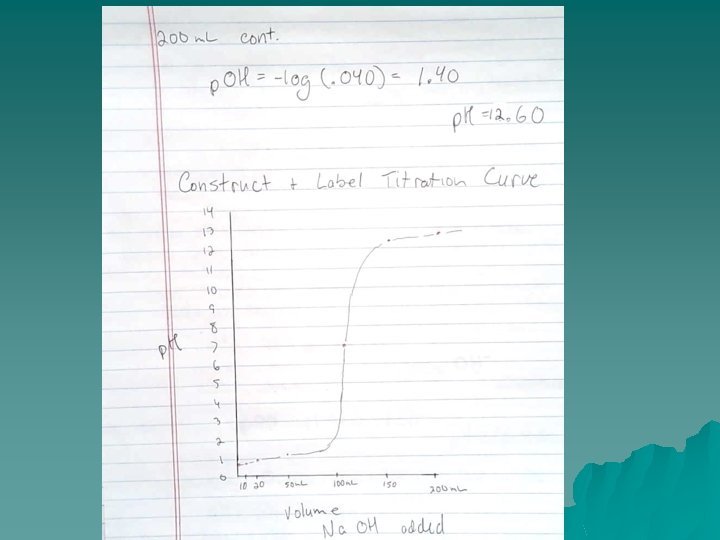 200 mL cont.
pOH = -log (.040) = 1.40
pH = 12.60
Construct + Label Titration Curve
14
13
12
11
10
9
8
7
pH
6
5
4
3
2
1
0
10 20 50mL 100mL 150 200mL
Volume
NaOH added